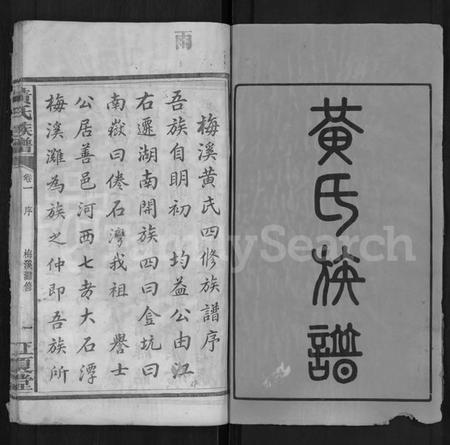 黃氏族譜
梅溪黃氏四修族譜序
吾族自明初 均益公由江
右遷湖南開族四曰盒坑曰
南嶽曰倦石灣我祖 譽士
公居善邑河西七都大石潭
梅溪灘為族之仲即吾族所
黃氏族譜
卷一 序 梅溪灘修
一
雨
FamilySearch